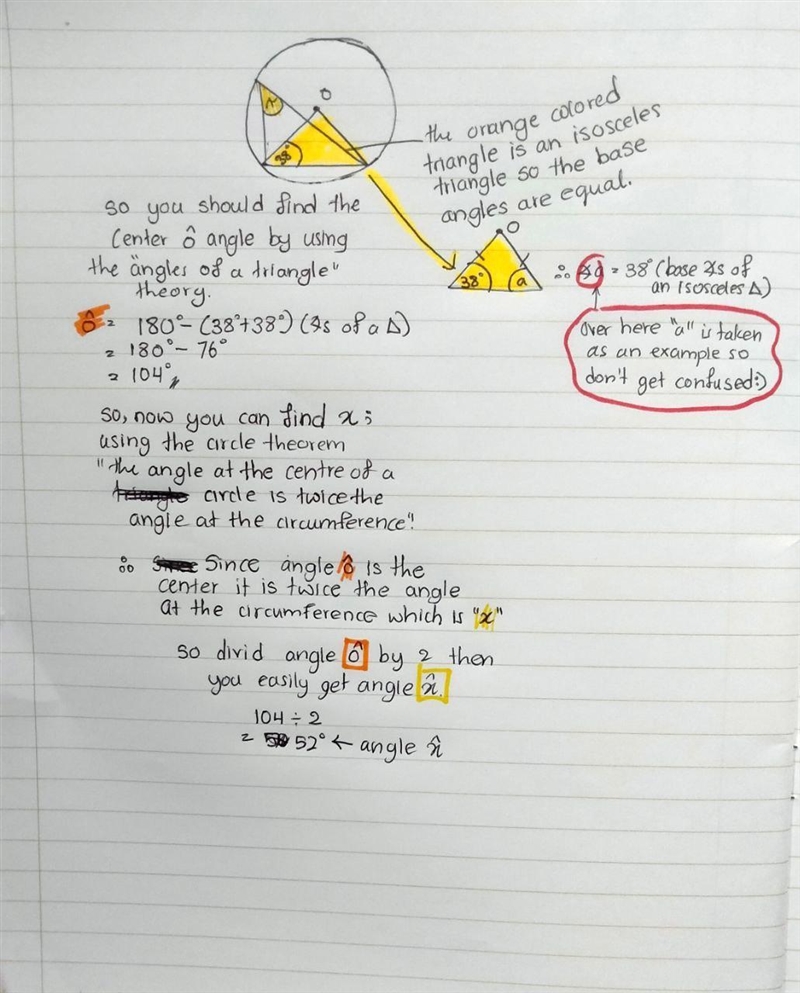 x
O
38°
the orange colored
triangle is an isosceles
triangle so the base
angles are equal.
so you should find the
center ô angle by using
the "angles of a triangle"
theory.
O
38°
a
∴ ∡a = 38° (base ∡s of
an Isosceles Δ)
Over here "a" is taken
as an example so
don't get confused:)
ô = 180° - (38°+38°) (∡s of a Δ)
= 180° - 76°
= 104°
so, now you can find x;
using the circle theorem
"the angle at the centre of a
triangle circle is twice the
angle at the circumference"!
∴ Since Since angle ô is the
center it is twice the angle
at the circumference which is "x"
so divid angle ô by 2 then
you easily get angle x̂.
104 ÷ 2
= 52° ← angle x̂